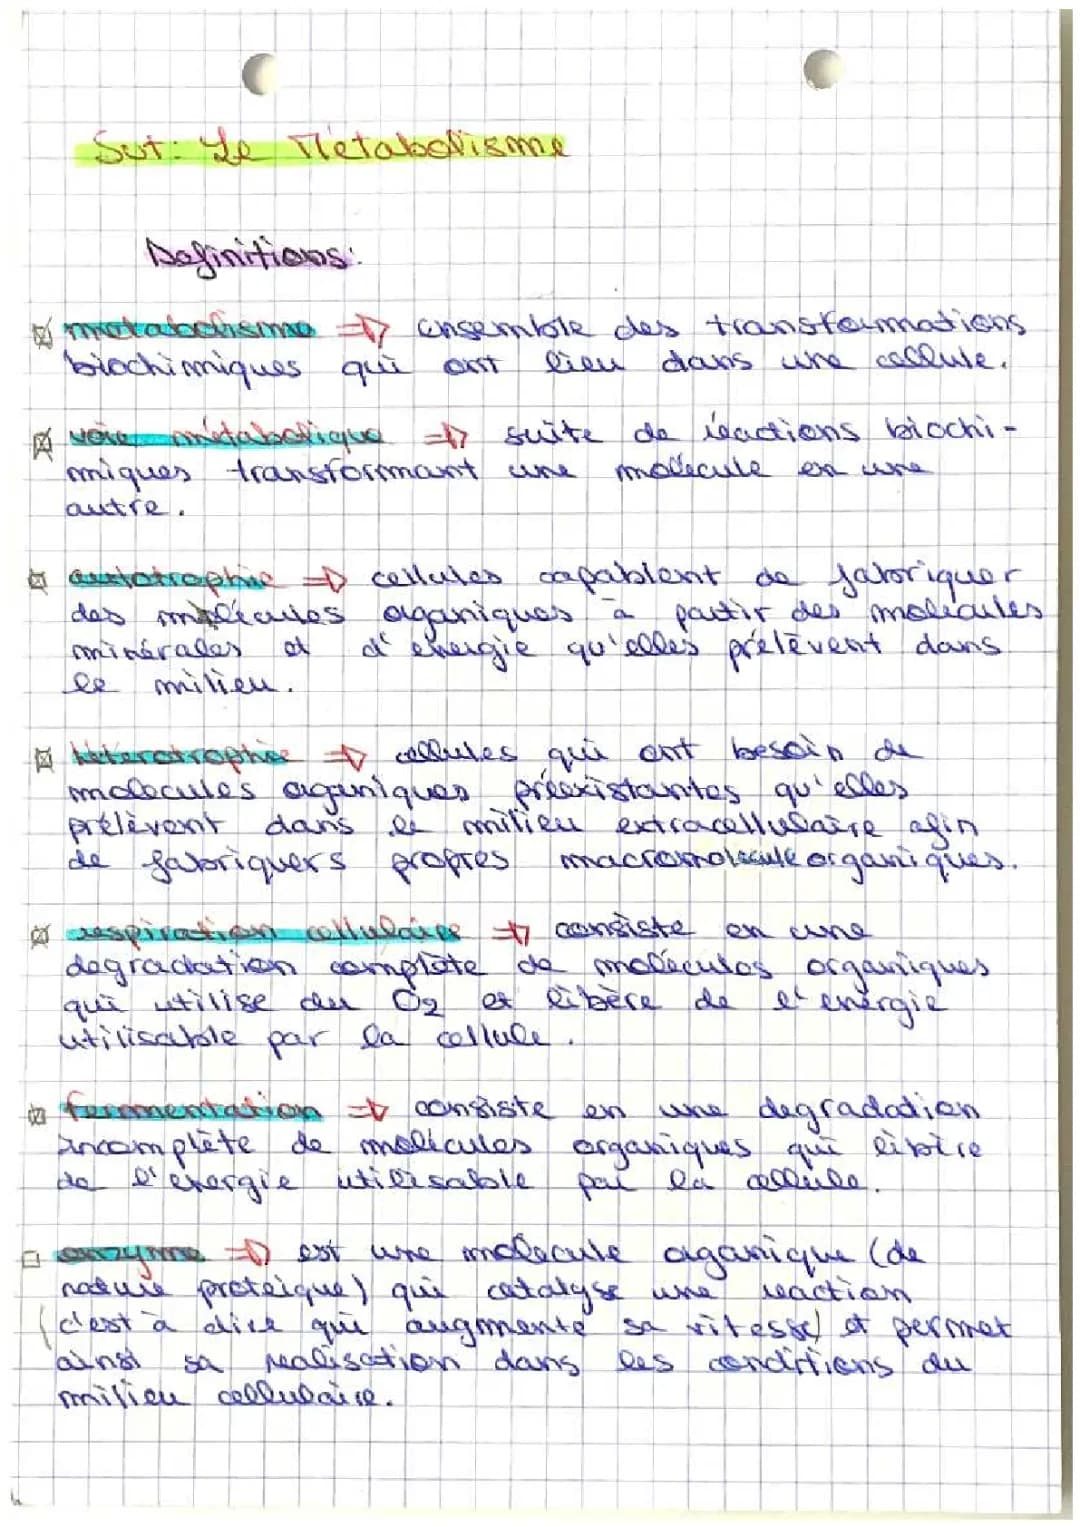 Svt: Le Métabolisme
Définitions:
métabolisme => ensemble des transformations
biochimiques qui ont lieu dans une cellule.
voie métabolique => suite de réactions biochi-
miques transformant une molécule en une
autre.
autotrophie => cellules capablent de fabriquer
des molécules organiques à partir des molécules
minérales et d'énergie qu'elles prélèvent dans
le milieu.
hétérotrophie => cellules qui ont besoin de
molécules organiques préexistantes qu'elles
prélèvent dans le milieu extracellulaire afin
de fabriquers propres macromolécule organiques.
respiration cellulaire => consiste en une
dégradation complète de molécules organiques
qui utilise du O2 et libère de l'énergie
utilisable par la cellule.
fermentation => consiste en une dégradation
incomplète de molécules organiques qui libère
de l'énergie utilisable par la cellule.
enzyme => est une molécule organique (de
nature protéique) qui catalyse une réaction
(c'est à dire qui augmente sa vitesse) et permet
ainsi sa réalisation dans les conditions du
milieu cellulaire.